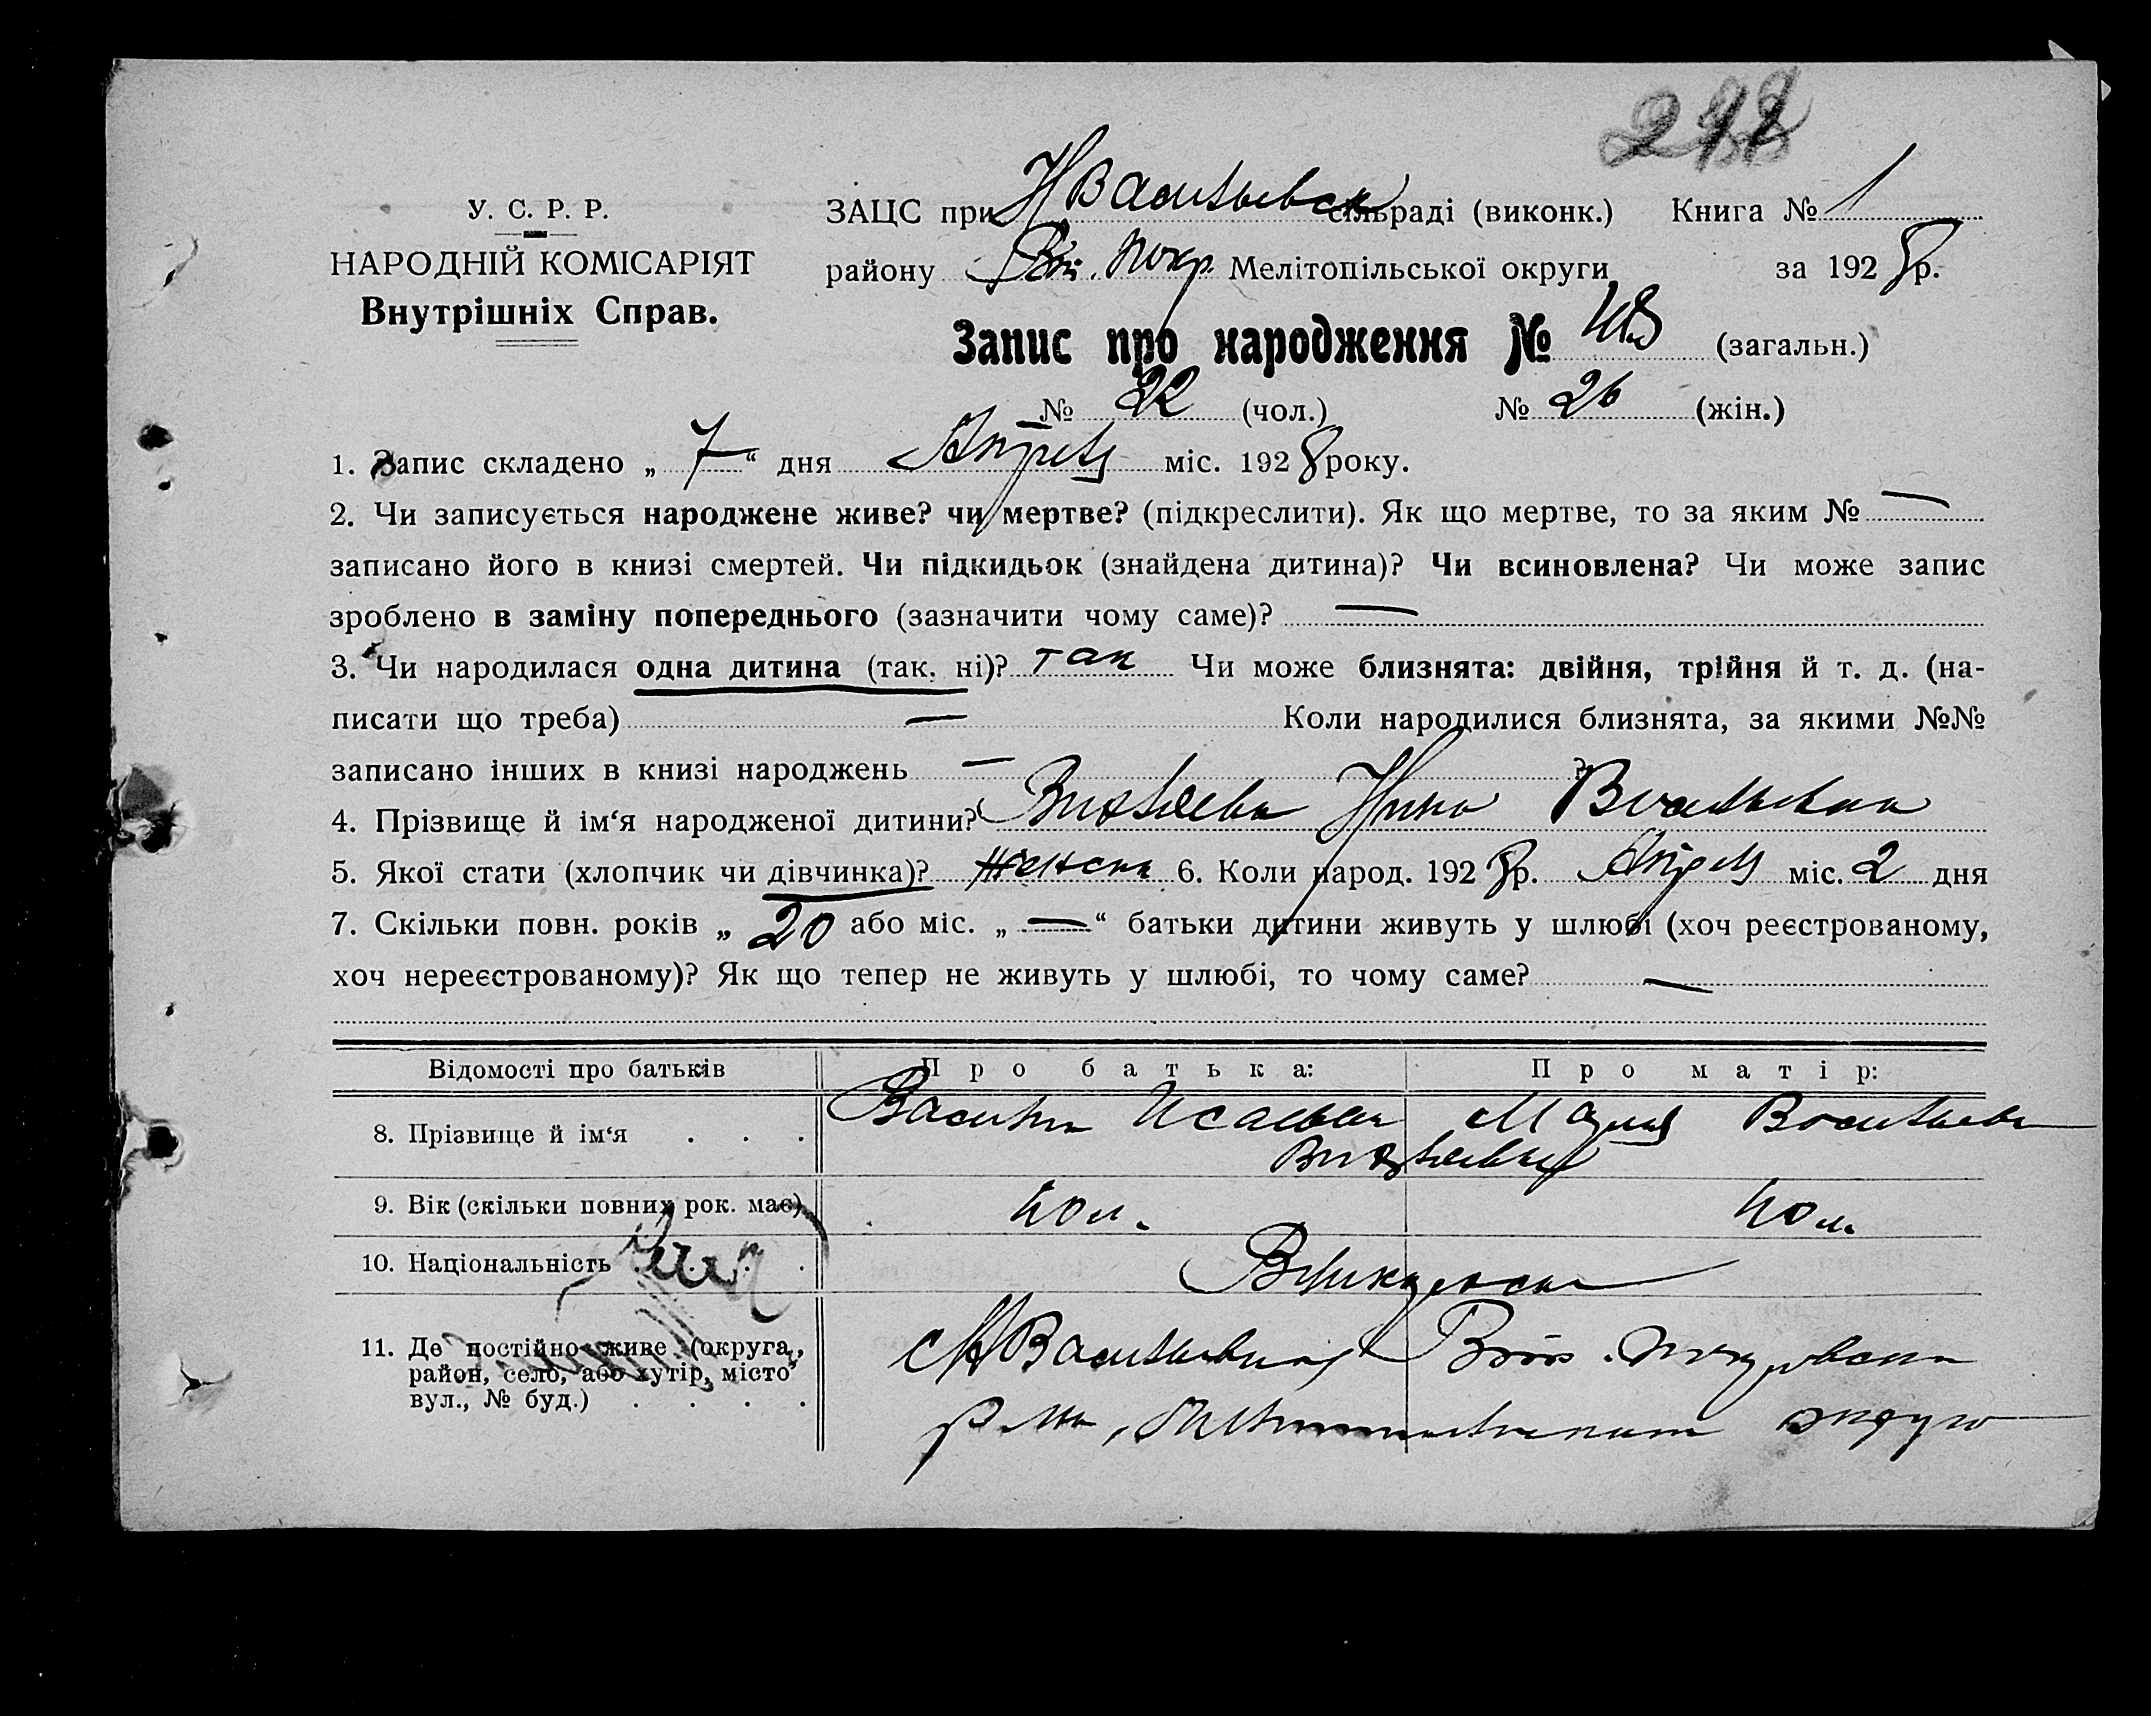 У. С. Р. Р.
НАРОДНІЙ КОМІСАРІЯТ
Внутрішніх Справ.
ЗАЦС при НВасильевск сільраді (виконк.) Книга № 1
району Вой. Покр. Мелітопільської округи за 1928 р.
Запис про народження № 48 (загальн.)
№ 22 (чол.) № 26 (жін.)
1. Запис складено „ 7 “ дня міс. 1928 року.
2. Чи записується народжене живе? чи мертве? (підкреслити). Як що мертве, то за яким № —
записано його в книзі смертей. Чи підкидьок (знайдена дитина)? Чи всиновлена? Чи може запис
зроблено в заміну попереднього (зазначити чому саме)? —
3. Чи народилася одна дитина (так, ні)? так Чи може близнята: двійня, трійня й т. д. (на-
писати що треба) — Коли народилися близнята, за якими №№
записано інших в книзі народжень — ?
4. Прізвище й ім‘я народженої дитини? Нина Васильевна
5. Якої стати (хлопчик чи дівчинка)? женска 6. Коли народ. 1928 р. міс. 2 дня
7. Скільки повн. років „ 20 або міс. „ — “ батьки дитини живуть у шлюбі (хоч реєстрованому,
хоч нереєстрованому)? Як що тепер не живуть у шлюбі, то чому саме? —
Відомості про батьків Про батька: Про матір:
8. Прізвище й ім‘я . . . Мария
9. Вік (скільки повних рок. має) 40 л. 40 л.
10. Національність
11. Де постійно живе (округа,
район, село, або хутір, місто
вул., № буд.) . . . .
округа